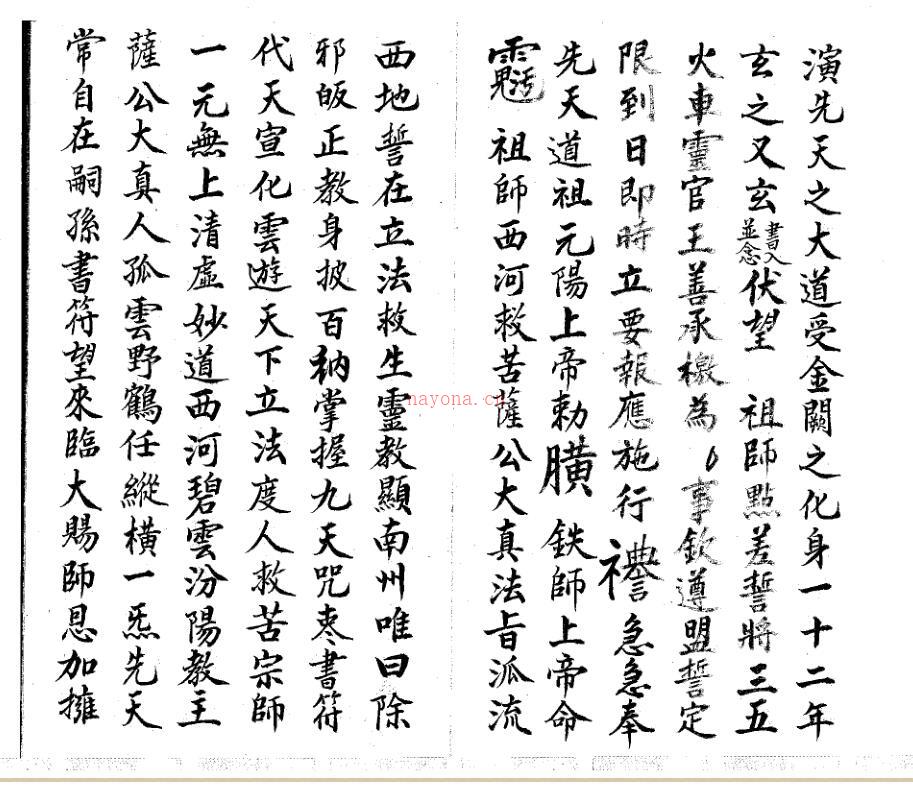 演先天之大道受金闕之化身一十二年
玄之又玄書入並念伏望 祖師點差誓將三五
火車靈官王善承檄為 事欽遵盟誓定
限到日即時立要報應施行 急急奉
先天道祖元陽上帝勅 鉄師上帝命
祖師西河救苦薩公大真法旨派流
西地誓在立法救生靈教顯南州唯曰除
邪皈正教身披百衲掌握九天咒棗書符
代天宣化雲遊天下立法度人救苦宗師
一元無上清虛妙道西河碧雲汾陽教主
薩公大真人孤雲野鶴任縱橫一炁先天
常自在嗣孫書符望來臨大賜師恩加擁
nayona.cn